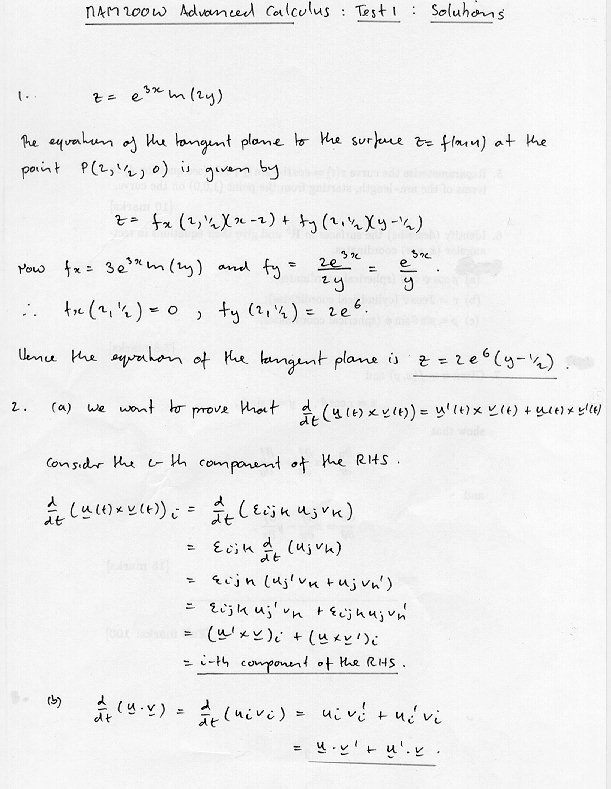 MAM200W Advanced Calculus : Test 1 : Solutions
1. z = e^{3x} ln(2y)
The equation of the tangent plane to the surface z = f(x,y) at the
point P(2, 1/2, 0) is given by
z = fx(2, 1/2)(x-2) + fy(2, 1/2)(y-1/2)
Now fx = 3e^{3x} ln(2y) and fy = 2e^{3x}/2y = e^{3x}/y .
∴ fx(2, 1/2) = 0 , fy(2, 1/2) = 2e^6.
Hence the equation of the tangent plane is z = 2e^6(y-1/2) .
2. (a) we want to prove that d/dt (u(t) × v(t)) = u'(t) × v(t) + u(t) × v'(t)
Consider the i-th component of the RHS .
d/dt (u(t) × v(t))i = d/dt (εijk uj vk)
= εijk d/dt (uj vk)
= εijk (uj' vk + uj vk')
= εijk uj' vk + εijk uj vk'
= (u' × v)i + (u × v')i
= i-th component of the RHS .
(b) d/dt (u . v) = d/dt (ui vi) = ui vi' + ui' vi
= u . v' + u' . v .